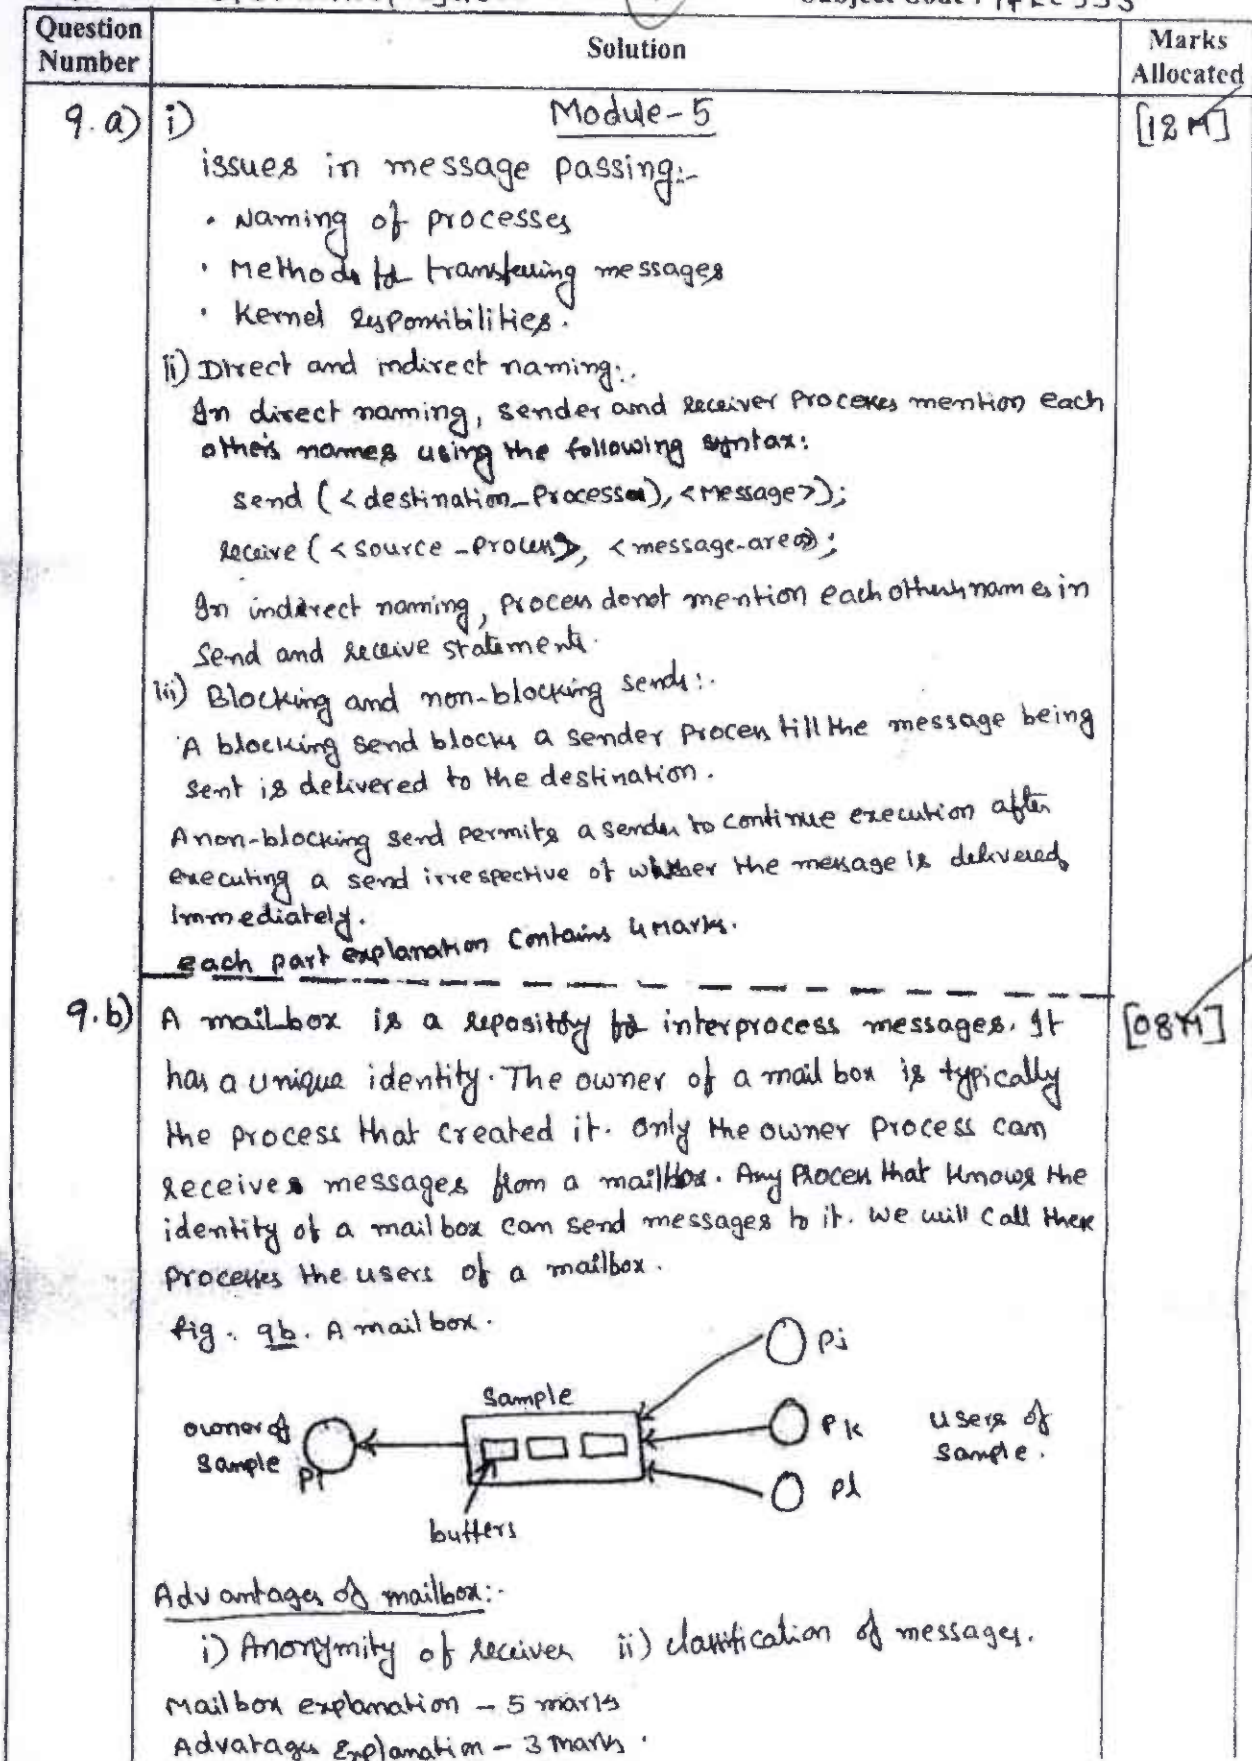 Question Number
Solution
Marks Allocated
9.a) i) Module-5 [12M]
issues in message passing:-
• Naming of processes
• Methods for transferring messages
• Kernel responsibilities.
ii) Direct and indirect naming:.
In direct naming, sender and receiver processes mention each
other's names using the following syntax:
send (<destination_Process>), <Message>);
receive (<source-process>, <message-area>);
In indirect naming, process do not mention each other's names in
Send and receive statement.
iii) Blocking and non-blocking sends:.
A blocking send blocks a sender process till the message being
sent is delivered to the destination.
A non-blocking send permits a sender to continue execution after
executing a send irrespective of whether the message is delivered
immediately.
each part explanation contains 4 marks.
9.b) A mailbox is a repository for interprocess messages. It [08M]
has a unique identity. The owner of a mail box is typically
the process that created it. Only the owner process can
receives messages from a mailbox. Any Process that knows the
identity of a mail box can send messages to it. we will call these
processes the users of a mailbox.
fig. 9b. A mail box.
Pj
Sample
owner of
sample
Pi
Pk
users of
sample.
Pl
buffers
Advantages of mailbox:-
i) Anonymity of receiver ii) classification of messages.
Mailbox explanation - 5 marks
Advatages Explanation - 3 marks.